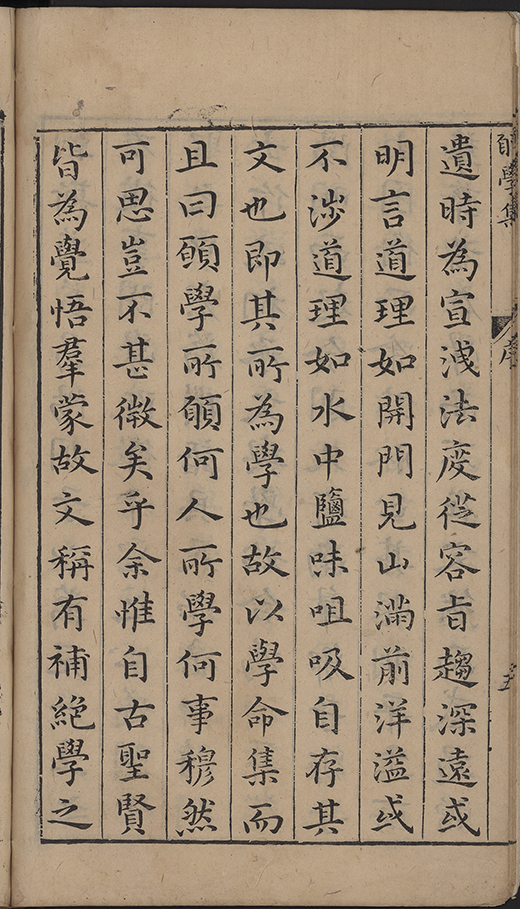 學集
序
遺時為宣淺法度從容旨趨深遠或
明言道理如開門見山滿前洋溢或
不涉道理如水中鹽味咀吸自存其
文也即其所為學也故以學命集而
且曰願學所願何人所學何事穆然
可思豈不甚微矣乎余惟自古聖賢
皆為覺悟羣蒙故文稱有補絕學之